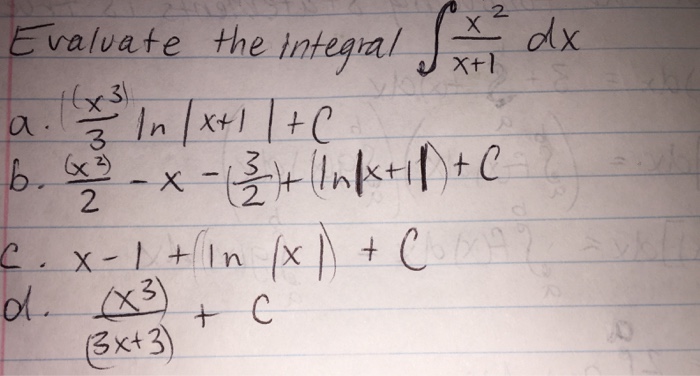 Evaluate the integral ∫ x²/(x+1) dx
a. ((x³)/3 ln |x+1| + C
b. (x²)/2 - x - (3/2) + (ln|x+1|) + C
c. x-1 + (ln |x|) + C
d. (x³)/(3x+3) + C